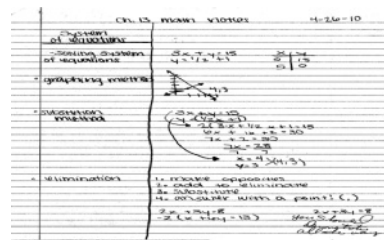 Ch. 13 math Notes 4-26-10
System of equations
- Solving System of equations
3x + y = 15
y = 1/2x + 1
x y
0 15
5 0
- graphing method
4,3
- substution method
3x + y = 15
y = 1/2x + 1
2(3x + 1/2x + 1 = 15
6x + 1x + 2 = 30
7x + 2 = 30
7x = 28
7 7
x = 4
y = 3 (4,3)
- elimination
1. make opposites
2. add to eliminate
3. Substitute
4. answer with a point! (,)
2x + 3y = 8 2x + 3y = 8